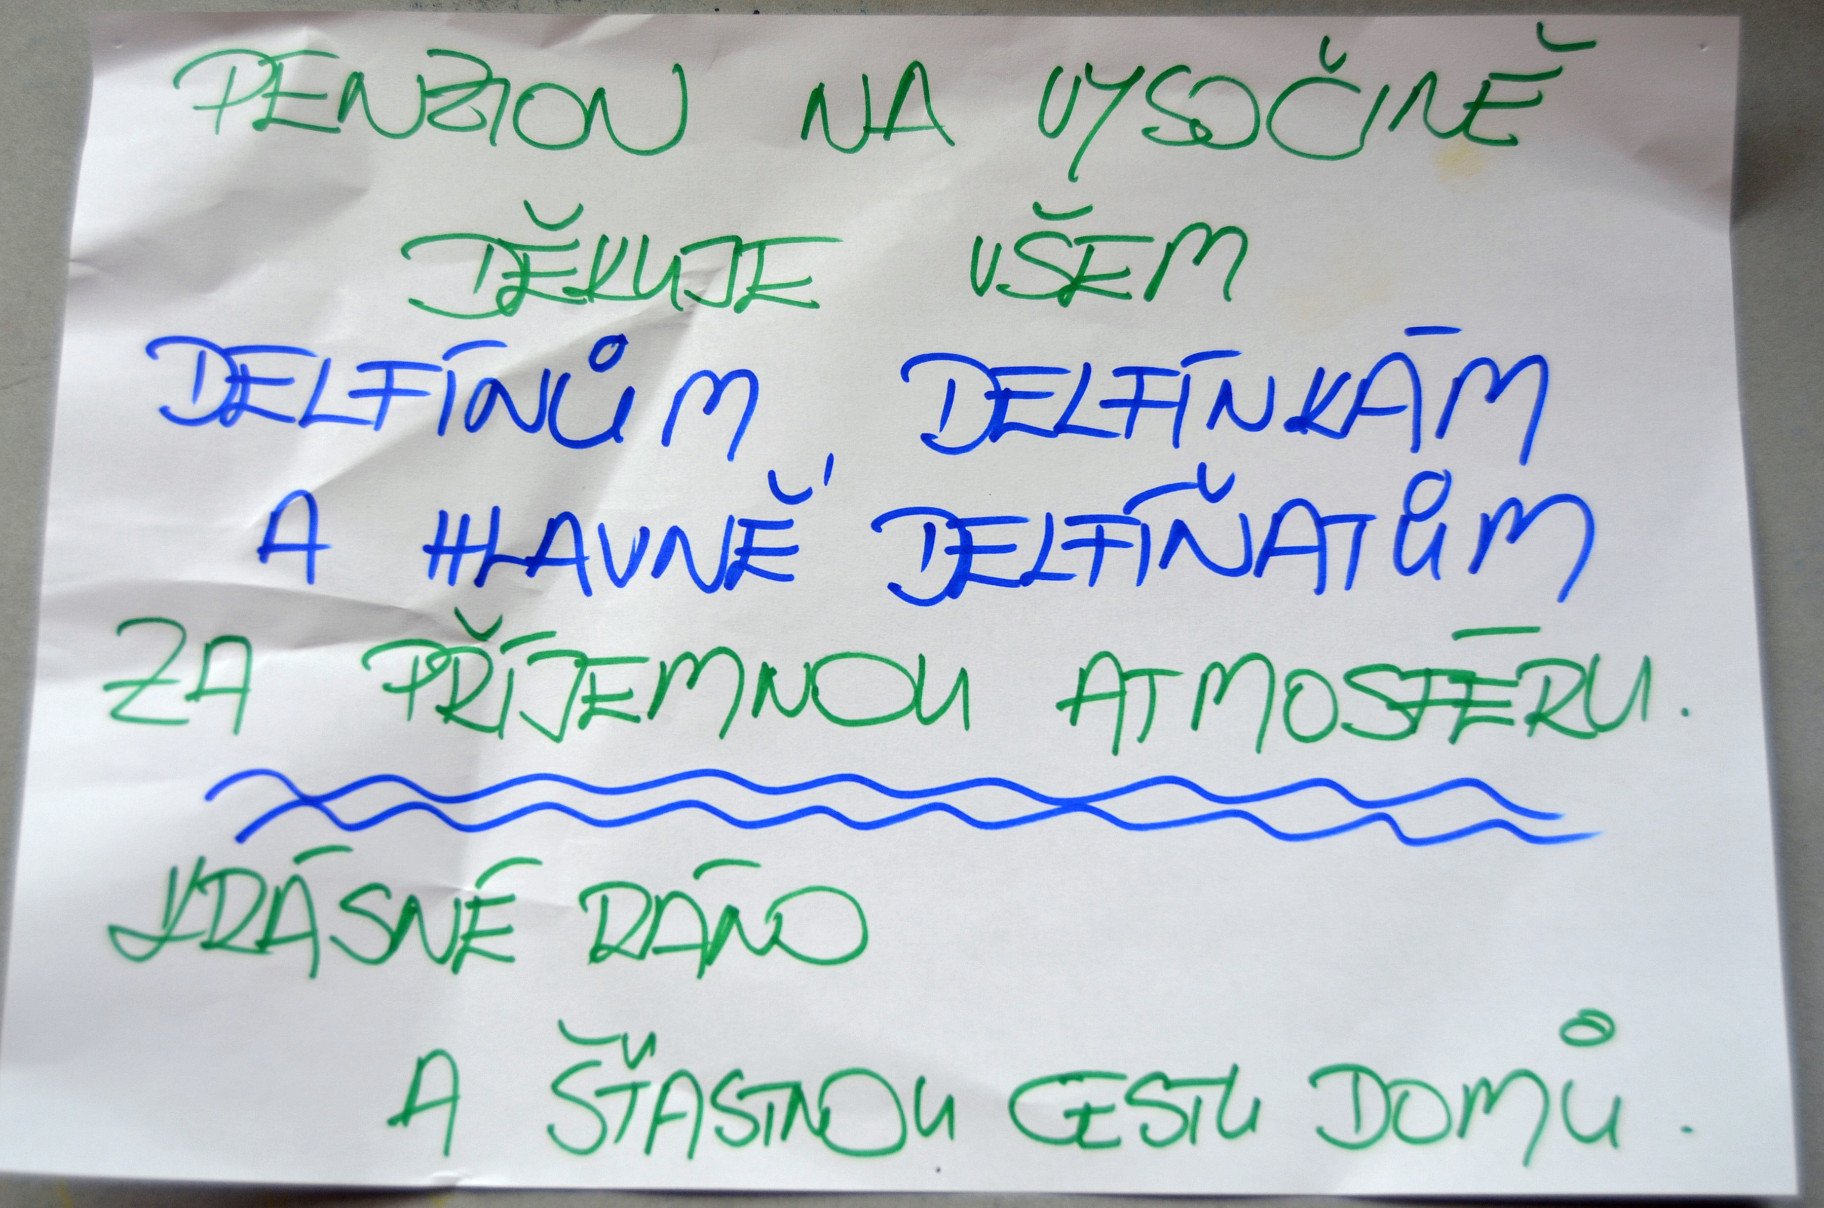 PENZION NA VYSOČINĚ
DĚKUJE VŠEM
DELFÍNŮM, DELFÍNKÁM
A HLAVNĚ DELFÍŇATŮM
ZA PŘÍJEMNOU ATMOSFÉRU.
KRÁSNÉ RÁNO
A ŠŤASTNOU CESTU DOMŮ.